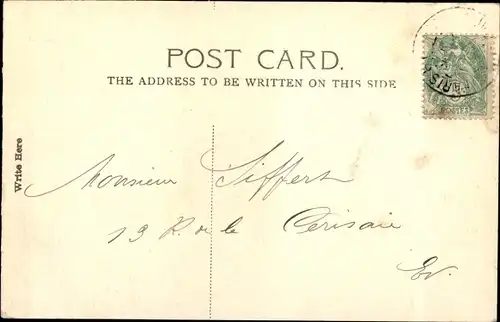 POST CARD.
THE ADDRESS TO BE WRITTEN ON THIS SIDE
Write Here
PARIS
Monsieur Siffert
13 R. de la Cerisaie
Ev.